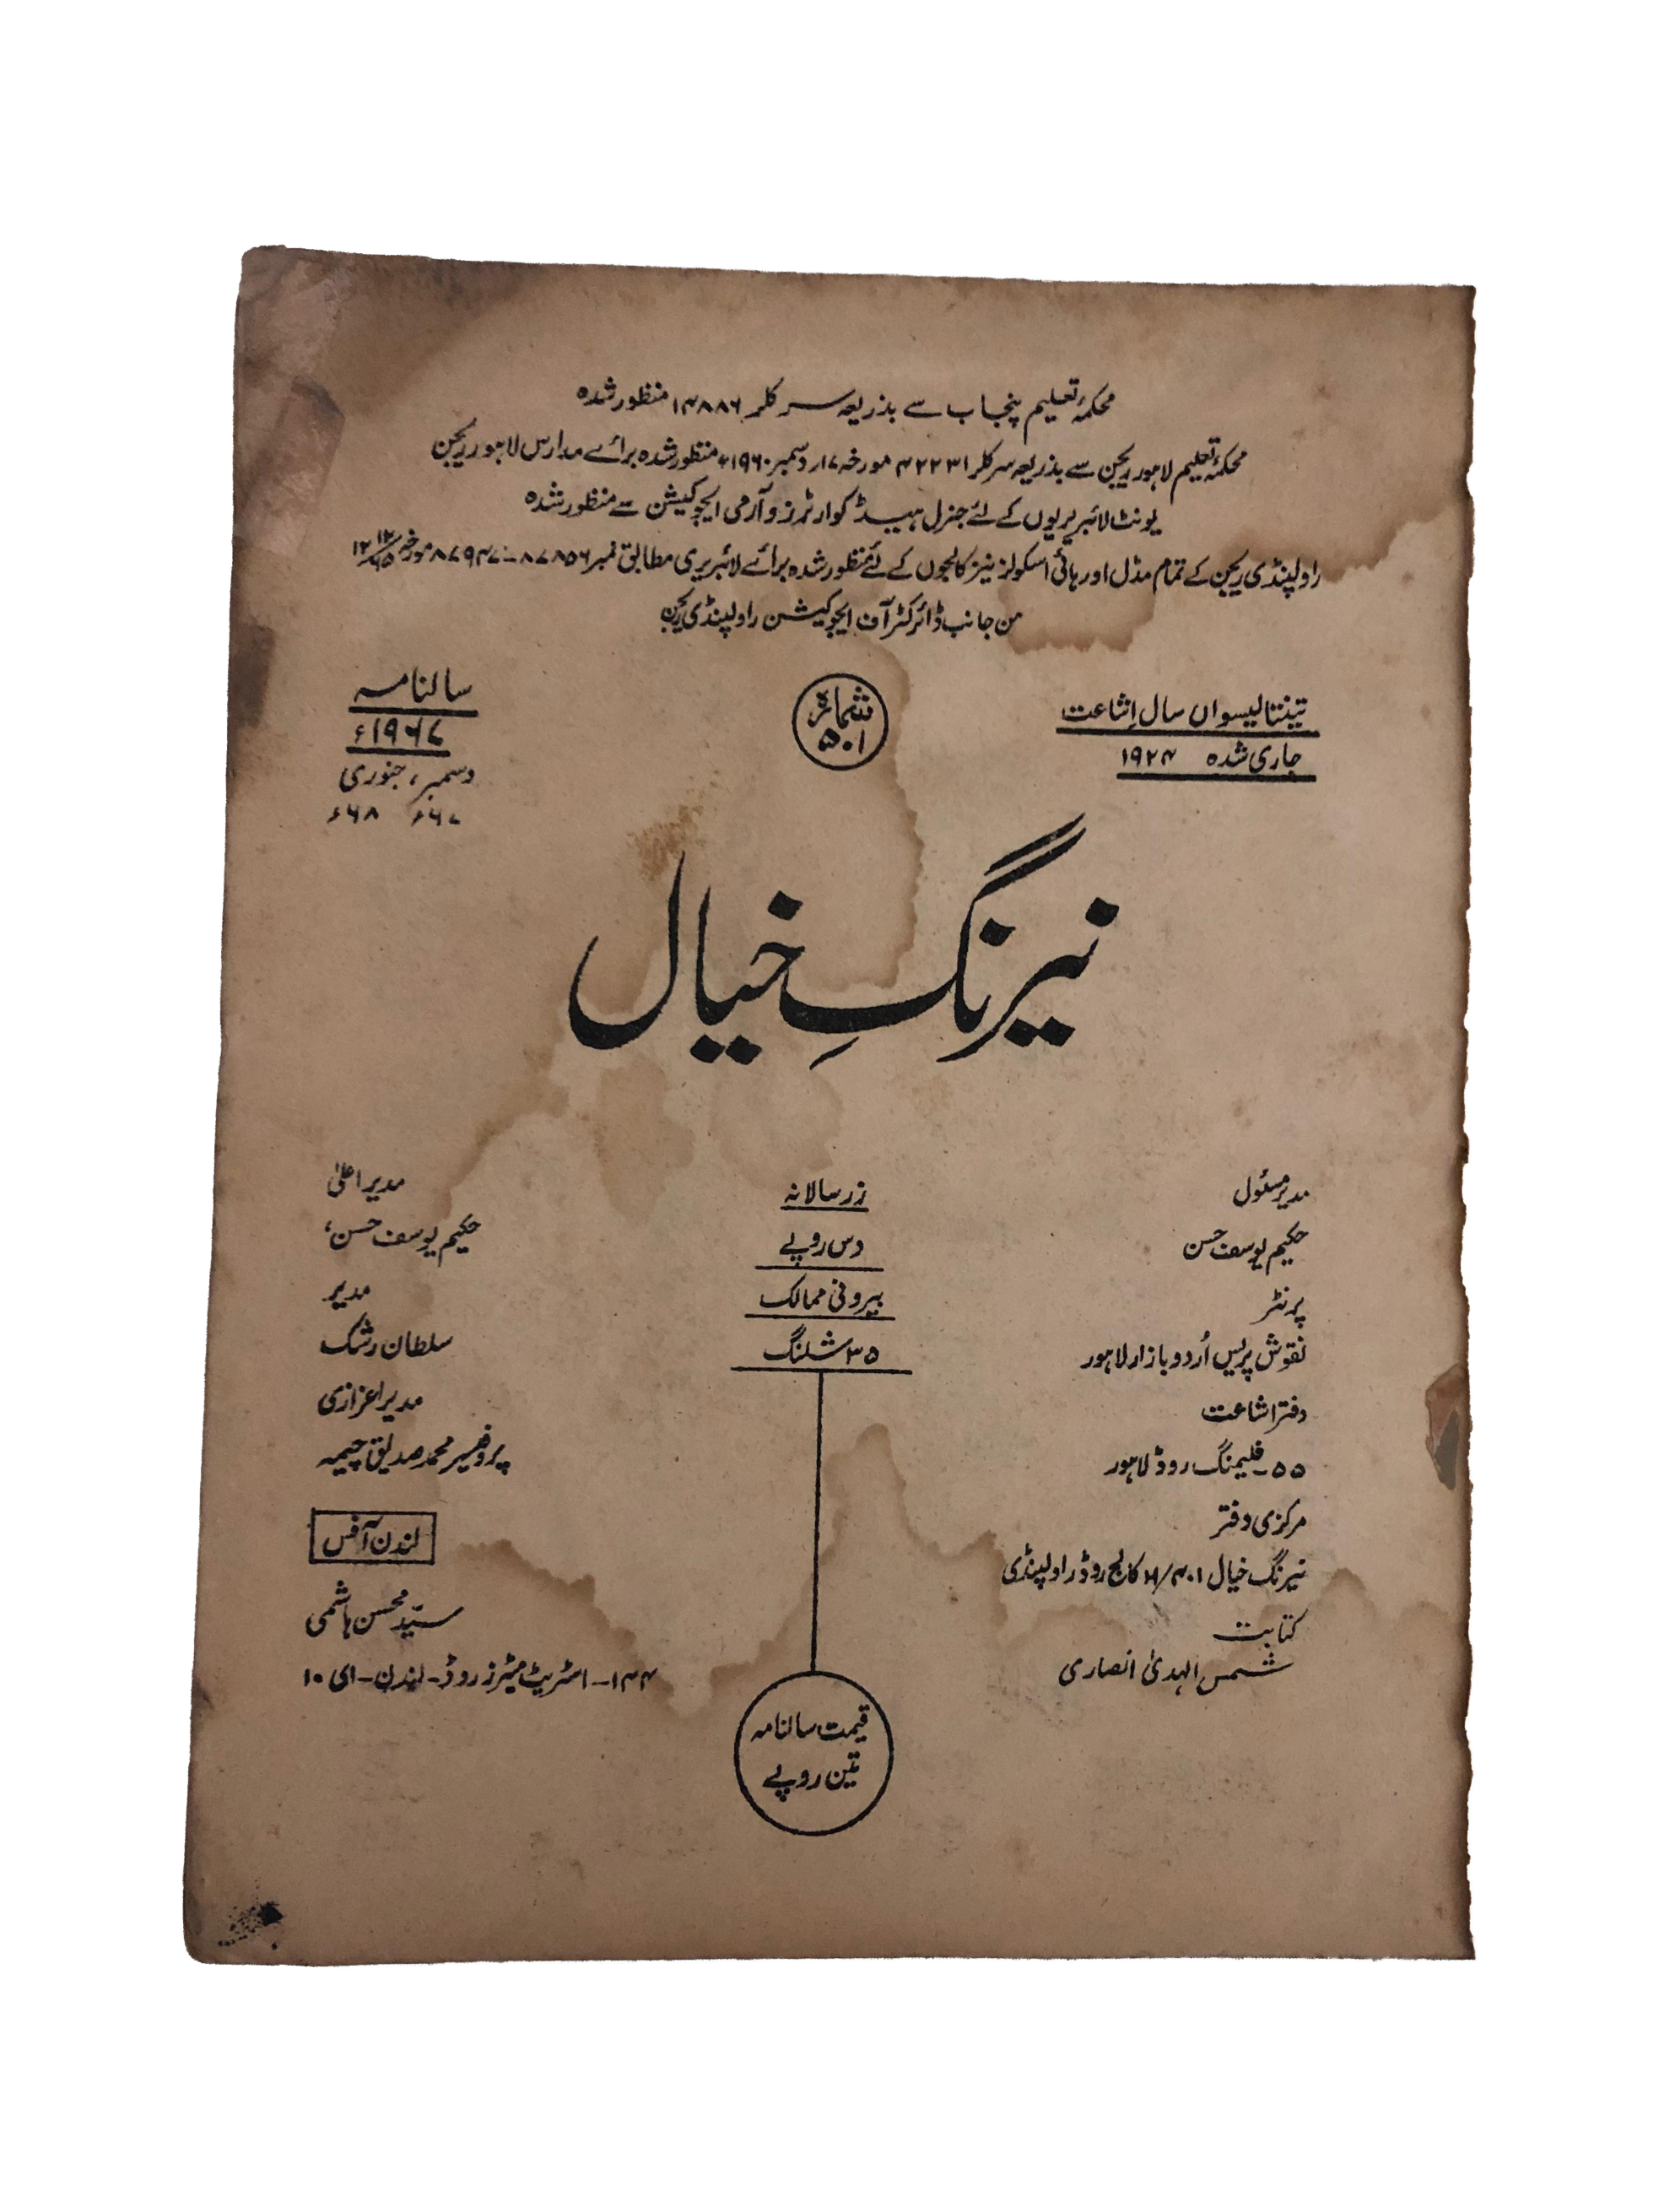 محکمۂ تعلیم پنجاب سے بذریعہ سرکلر ۱۴۸۸۶ منظور شدہ
محکمۂ تعلیم لاہور ریجن سے بذریعہ سرکلر ۴۲۲۳۱ مورخہ ۱۷؍دسمبر ۱۹۶۰ء منظور شدہ برائے مدارس لاہور ریجن
یونٹ لائبریریوں کے لئے جنرل ہیڈ کوارٹرز و آرمی ایجوکیشن سے منظور شدہ
راولپنڈی ریجن کے تمام مڈل اور ہائی اسکولز نیز کالجوں کے لئے منظور شدہ برائے لائبریری مطابق نمبر ۸۷۸۵۶-۸۷۹۴۷ مورخہ
من جانب ڈائرکٹر آف ایجوکیشن راولپنڈی ریجن
تینتالیسواں سال اِشاعت
جاری شدہ ۱۹۲۴
شمارہ
۵۰۱
سالنامہ
۱۹۶۷ء
دسمبر، جنوری
۶۷ء ۶۸ء
نیرنگِ خیال
مدیر مسئول
حکیم یوسف حسن
پرنٹر
نقوش پریس اُردو بازار لاہور
دفتر اشاعت
۵۵-فلیمنگ روڈ لاہور
مرکزی دفتر
نیرنگ خیال ۴۰۱/H کالج روڈ راولپنڈی
کتابت
شمس الہدیٰ انصاری
زر سالانہ
دس روپے
بیرونی ممالک
۳۵ شلنگ
قیمت سالنامہ
تین روپے
مدیر اعلیٰ
حکیم یوسف حسن،
مدیر
سلطان رشک
مدیر اعزازی
پروفیسر محمد صدیق چیمہ
لندن آفس
سیّد محسن ہاشمی
۱۴۴-اسٹریٹ میٹرز روڈ-لندن-ای ۱۰